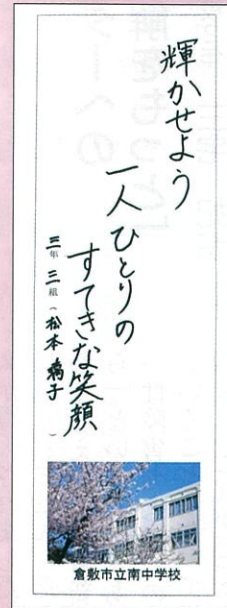 輝かせよう
一人ひとりの
すてきな笑顔
三年 三組 (松本 璃子)
倉敷市立南中学校